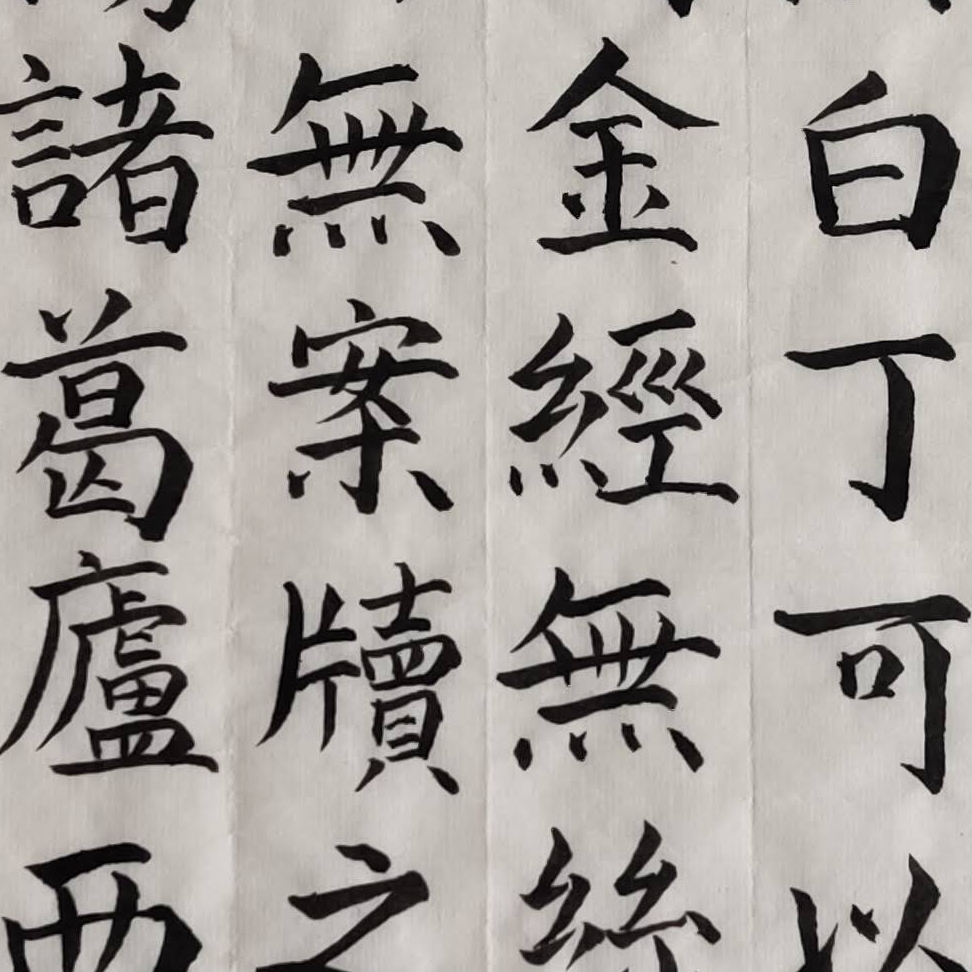 白丁可以
金經無絲
無案牘之
諸葛廬西